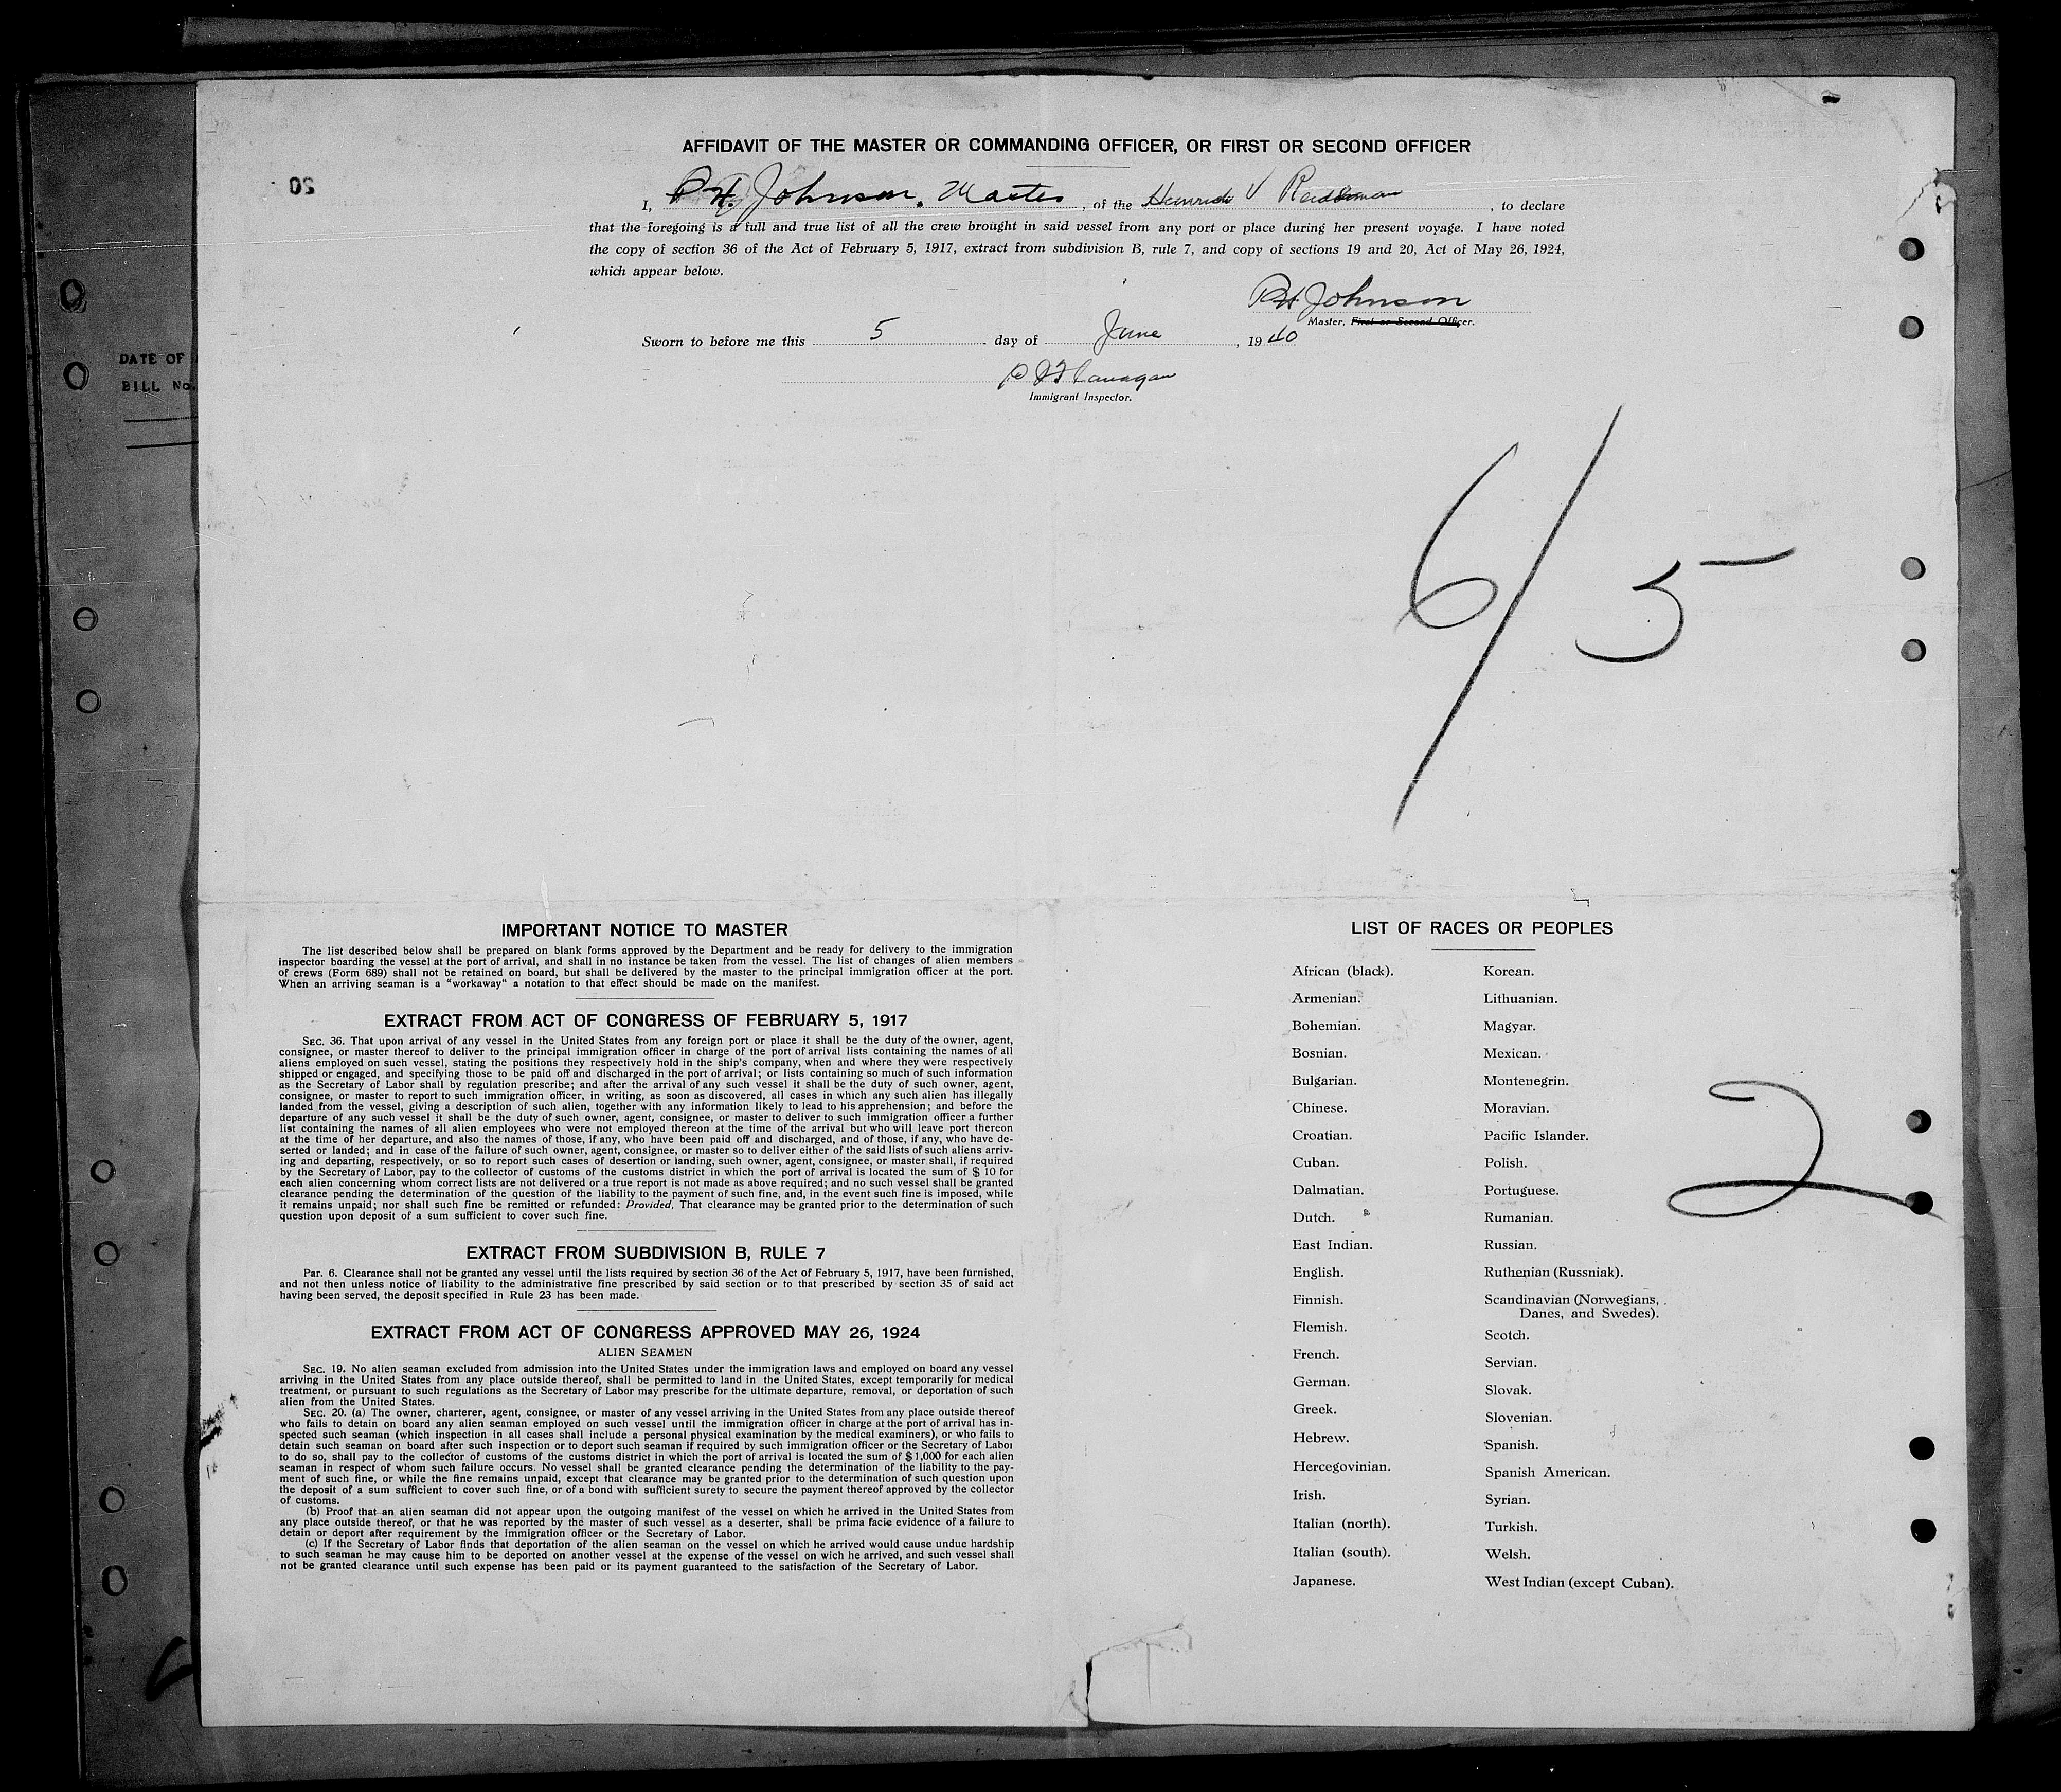 AFFIDAVIT OF THE MASTER OR COMMANDING OFFICER, OR FIRST OR SECOND OFFICER
I, P H. Johnson. Master, of the Heinrich V Reidemann, to declare
that the foregoing is a full and true list of all the crew brought in said vessel from any port or place during her present voyage. I have noted
the copy of section 36 of the Act of February 5, 1917, extract from subdivision B, rule 7, and copy of sections 19 and 20, Act of May 26, 1924,
which appear below.
PH Johnson
Master, First or Second Officer.
Sworn to before me this 5 day of June, 1940
Flanagan
Immigrant Inspector.
DATE OF
BILL No.
6/5
IMPORTANT NOTICE TO MASTER
The list described below shall be prepared on blank forms approved by the Department and be ready for delivery to the immigration
inspector boarding the vessel at the port of arrival, and shall in no instance be taken from the vessel. The list of changes of alien members
of crews (Form 689) shall not be retained on board, but shall be delivered by the master to the principal immigration officer at the port.
When an arriving seaman is a "workaway" a notation to that effect should be made on the manifest.
EXTRACT FROM ACT OF CONGRESS OF FEBRUARY 5, 1917
SEC. 36. That upon arrival of any vessel in the United States from any foreign port or place it shall be the duty of the owner, agent,
consignee, or master thereof to deliver to the principal immigration officer in charge of the port of arrival lists containing the names of all
aliens employed on such vessel, stating the positions they respectively hold in the ship's company, when and where they were respectively
shipped or engaged, and specifying those to be paid off and discharged in the port of arrival; or lists containing so much of such information
as the Secretary of Labor shall by regulation prescribe; and after the arrival of any such vessel it shall be the duty of such owner, agent,
consignee, or master to report to such immigration officer, in writing, as soon as discovered, all cases in which any such alien has illegally
landed from the vessel, giving a description of such alien, together with any information likely to lead to his apprehension; and before the
departure of any such vessel it shall be the duty of such owner, agent, consignee, or master to deliver to such immigration officer a further
list containing the names of all alien employees who were not employed thereon at the time of the arrival but who will leave port thereon
at the time of her departure, and also the names of those, if any, who have been paid off and discharged, and of those, if any, who have de-
serted or landed; and in case of the failure of such owner, agent, consignee, or master so to deliver either of the said lists of such aliens arriv-
ing and departing, respectively, or so to report such cases of desertion or landing, such owner, agent, consignee, or master shall, if required
by the Secretary of Labor, pay to the collector of customs of the customs district in which the port of arrival is located the sum of $ 10 for
each alien concerning whom correct lists are not delivered or a true report is not made as above required; and no such vessel shall be granted
clearance pending the determination of the question of the liability to the payment of such fine, and, in the event such fine is imposed, while
it remains unpaid; nor shall such fine be remitted or refunded: Provided, That clearance may be granted prior to the determination of such
question upon deposit of a sum sufficient to cover such fine.
EXTRACT FROM SUBDIVISION B, RULE 7
Par. 6. Clearance shall not be granted any vessel until the lists required by section 36 of the Act of February 5, 1917, have been furnished,
and not then unless notice of liability to the administrative fine prescribed by said section or to that prescribed by section 35 of said act
having been served, the deposit specified in Rule 23 has been made.
EXTRACT FROM ACT OF CONGRESS APPROVED MAY 26, 1924
ALIEN SEAMEN
SEC. 19. No alien seaman excluded from admission into the United States under the immigration laws and employed on board any vessel
arriving in the United States from any place outside thereof, shall be permitted to land in the United States, except temporarily for medical
treatment, or pursuant to such regulations as the Secretary of Labor may prescribe for the ultimate departure, removal, or deportation of such
alien from the United States.
SEC. 20. (a) The owner, charterer, agent, consignee, or master of any vessel arriving in the United States from any place outside thereof
who fails to detain on board any alien seaman employed on such vessel until the immigration officer in charge at the port of arrival has in-
spected such seaman (which inspection in all cases shall include a personal physical examination by the medical examiners), or who fails to
detain such seaman on board after such inspection or to deport such seaman if required by such immigration officer or the Secretary of Labor
to do so, shall pay to the collector of customs of the customs district in which the port of arrival is located the sum of $ 1,000 for each alien
seaman in respect of whom such failure occurs. No vessel shall be granted clearance pending the determination of the liability to the pay-
ment of such fine, or while the fine remains unpaid, except that clearance may be granted prior to the determination of such question upon
the deposit of a sum sufficient to cover such fine, or of a bond with sufficient surety to secure the payment thereof approved by the collector
of customs.
(b) Proof that an alien seaman did not appear upon the outgoing manifest of the vessel on which he arrived in the United States from
any place outside thereof, or that he was reported by the master of such vessel as a deserter, shall be prima facie evidence of a failure to
detain or deport after requirement by the immigration officer or the Secretary of Labor.
(c) If the Secretary of Labor finds that deportation of the alien seaman on the vessel on which he arrived would cause undue hardship
to such seaman he may cause him to be deported on another vessel at the expense of the vessel on wich he arrived, and such vessel shall
not be granted clearance until such expense has been paid or its payment guaranteed to the satisfaction of the Secretary of Labor.
LIST OF RACES OR PEOPLES
African (black).
Armenian.
Bohemian.
Bosnian.
Bulgarian.
Chinese.
Croatian.
Cuban.
Dalmatian.
Dutch.
East Indian.
English.
Finnish.
Flemish.
French.
German.
Greek.
Hebrew.
Hercegovinian.
Irish.
Italian (north).
Italian (south).
Japanese.
Korean.
Lithuanian.
Magyar.
Mexican.
Montenegrin.
Moravian.
Pacific Islander.
Polish.
Portuguese.
Rumanian.
Russian.
Ruthenian (Russniak).
Scandinavian (Norwegians,
Danes, and Swedes).
Scotch.
Servian.
Slovak.
Slovenian.
Spanish.
Spanish American.
Syrian.
Turkish.
Welsh.
West Indian (except Cuban).
2